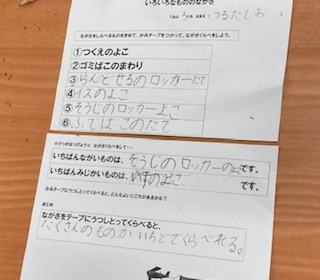 いろいろなもののながさ
なまえ つるたしお
ながさをしらべるものをきめて、かみテープをつかって、ながさくらべをしよう。
①つくえのよこ
②ゴミばこのまわり
③らんどせるのロッカーたて
④イスのよこ
⑤そうじのロッカーよこ
⑥ふではこのたて
いちばんながいものは、そうじのロッカーのよこです。
いちばんみじかいものは、いすのよこです。
かみテープにうつしとってくらべると、どんなよいところがあるかな？
まとめ
ながさをテープにうつしとってくらべると、
たくさんのものがいちどでくらべれる。